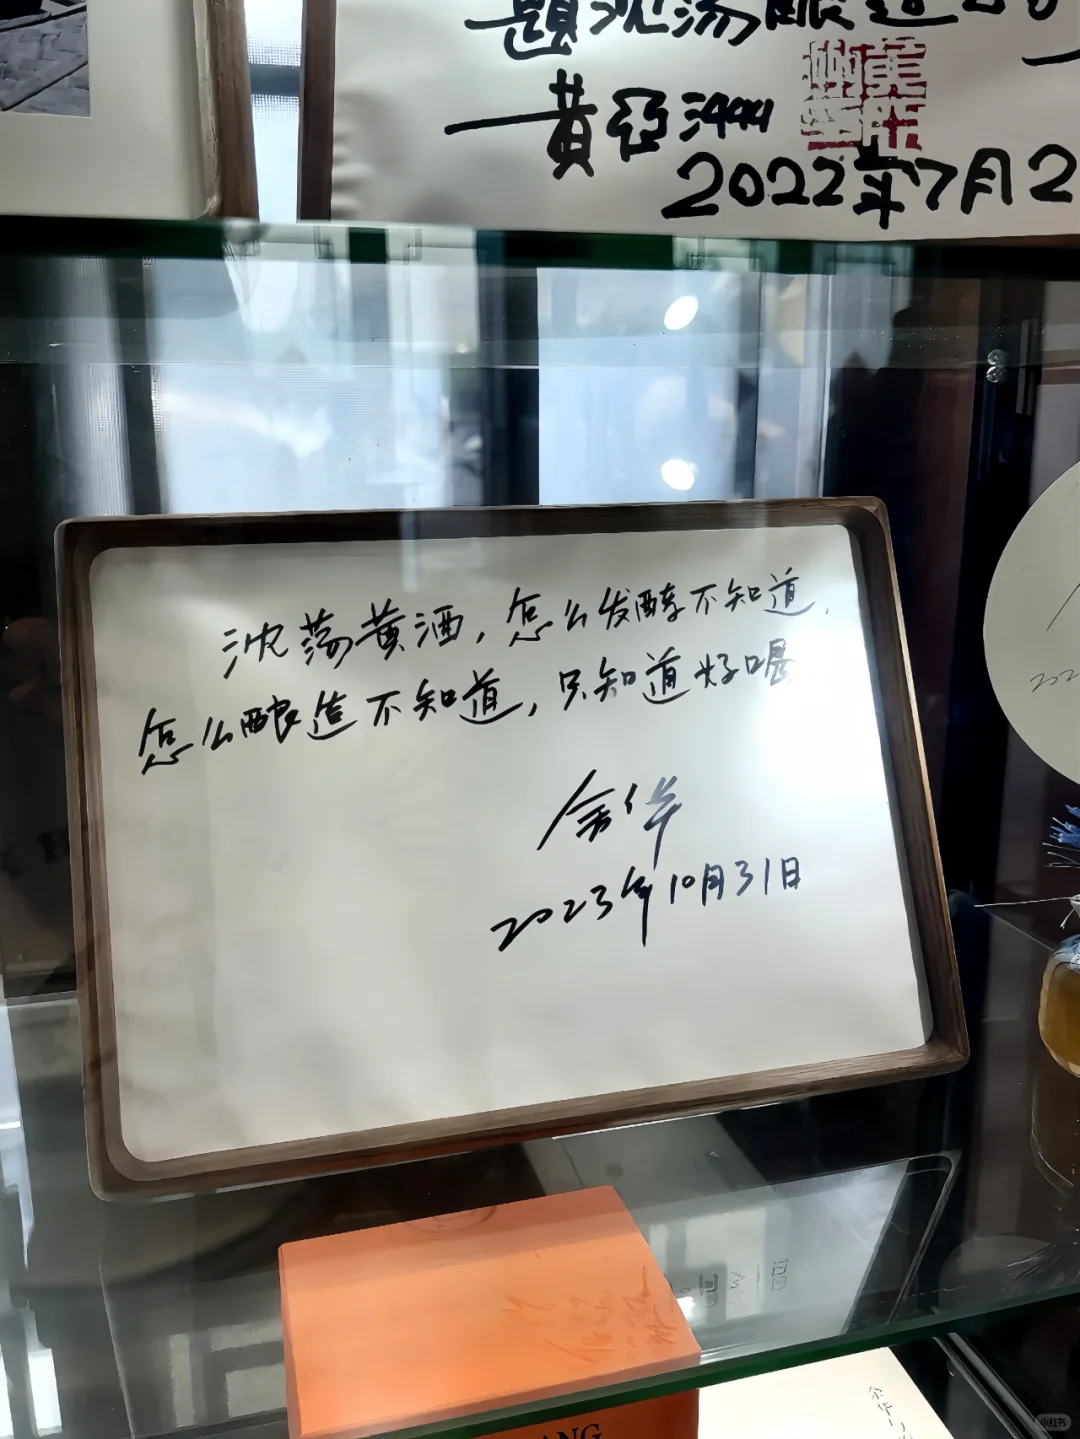 题沈荡酿造
黄亚洲
2022年7月2
沈荡黄酒，怎么发酵不知道，
怎么酿造不知道，只知道好喝
余华
2023年10月31日
202
ANG
余华
小红书